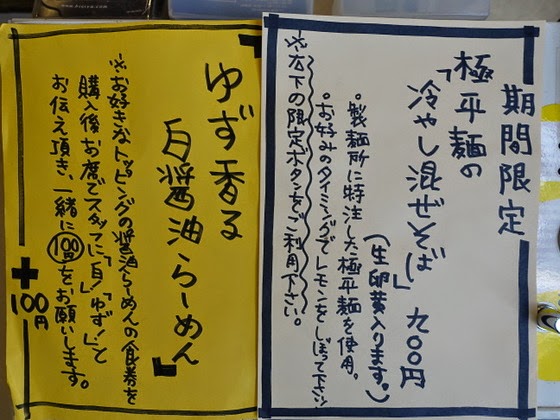 期間限定
極平麺の
「冷やし混ぜそば」 九〇〇円
(生卵黄入ります。)
。製麺所に特注した極平麺を使用。
。お好みのタイミングでレモンをしぼって下さい
※右下の限定ボタンをご利用下さい。
ゆず香る
白醤油らーめん」
※お好きなトッピングの醤油らーめんの食券を
購入後お席でスタッフに「白!」「ゆず!」と
お伝え頂き、一緒に100円をお願いします。
+100円